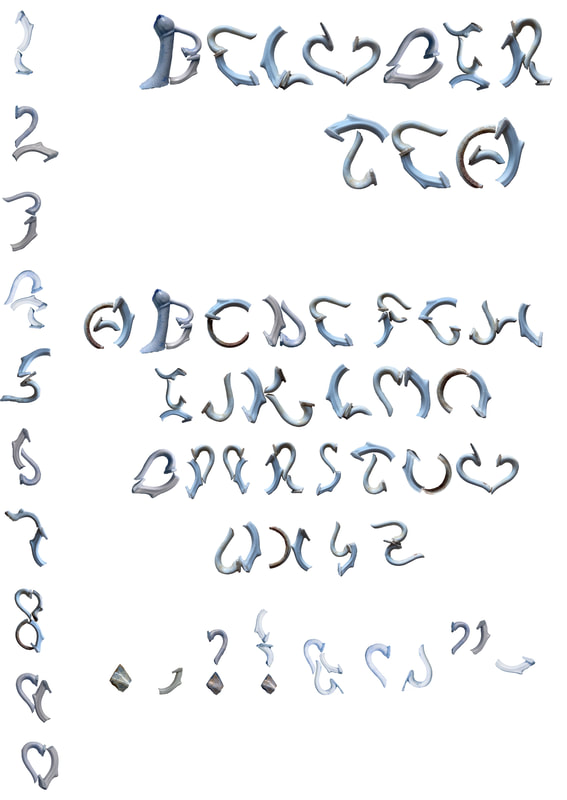 BELVOIR
TEA
1
2
3
4
5
6
7
8
9
0
ABCDEFGH
IJKLMN
OPQRSTUV
WXYZ
. , ? ! & ( ) " -